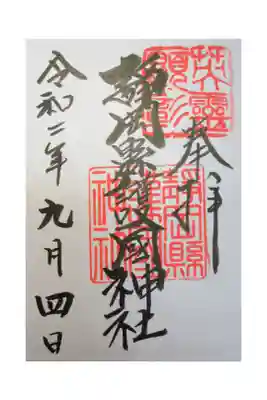 奉拝
英靈
顕彰
静岡縣護國神社
靜岡縣
護國
神社
令和二年九月四日